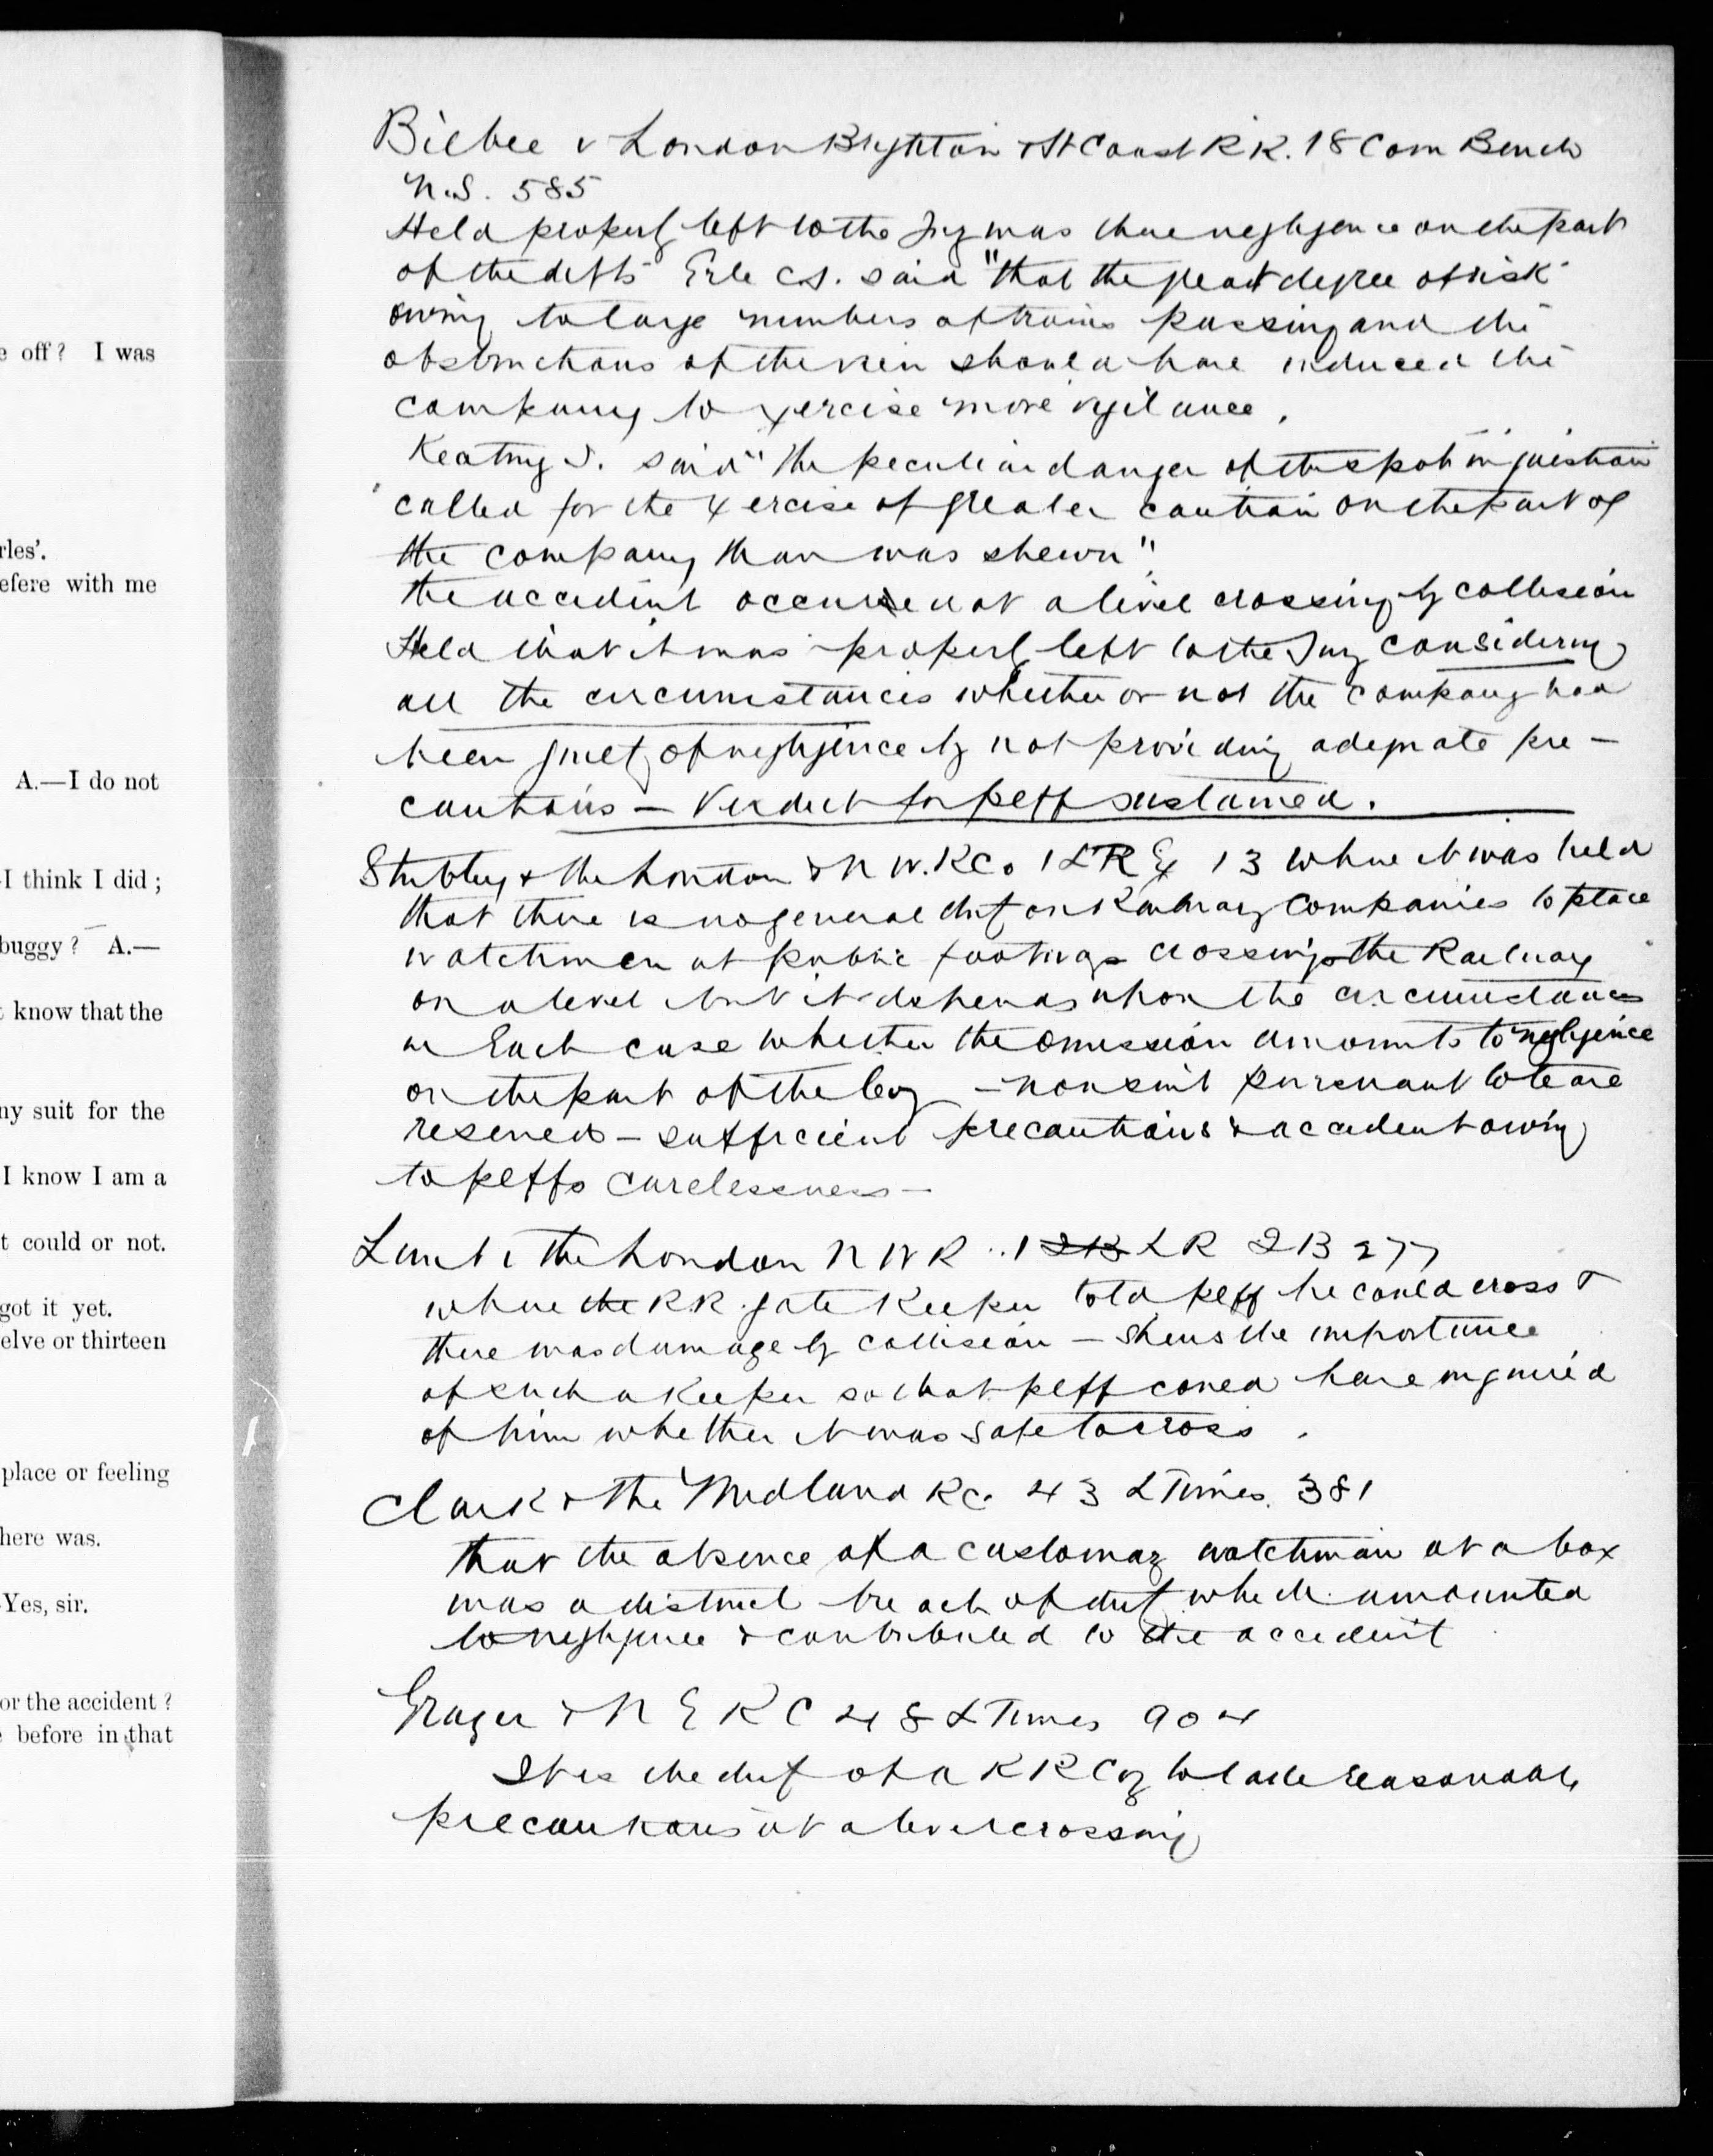 e off? I was
rles'.
efere with me
A.—I do not
-I think I did;
buggy? A.—
know that the
ny suit for the
I know I am a
t could or not.
got it yet.
elve or thirteen
place or feeling
here was.
-Yes, sir.
or the accident?
e before in that
Bilbee v London Brighton & St Coast R R. 18 Com Bench
N.S. 585
Held properly left to the Jury was there negligence on the part
of the defts Erle C.J. said "that the great degree of risk
owing to large numbers of trains passing and the
obstructions of the view should have induced the
company to exercise more vigilance.
Keating J. said "the peculiar danger of the spot in question
called for the exercise of greater caution on the part of
the company than was shewn"
the accident occurred at a level crossing by collision
Held that it was properly left to the Jury considering
all the circumstances whether or not the company had
been guilty of negligence by not providing adequate pre-
cautions — Verdict for peff sustained.
Stubley v the London & N W. R Co 1 LR Ex 13 where it was held
that there is no general duty on Railway Companies to place
watchmen at public footways crossing the Railway
on a level but it depends upon the circumstances
in Each case whether the omission amounts to negligence
on the part of the Coy — nonsuit pursuant to leave
reserved — sufficient precautions & accident owing
to peffs carelessness —
Lunt v the London N W R .. 1 2B LR 2B 277
where the R.R. gate Keeper told peff he could cross &
there was damage by collision — shews the importance
of such a Keeper so that peff could have inquired
of him whether it was safe to cross.
Clark v the Midland R C. 43 L Times. 381
that the absence of a customary watchman at a box
was a distinct breach of duty which amounted
to negligence & contributed to the accident
v N E R C 48 L Times 904
It is the duty of a R R Coy to take reasonable
precautions at a level crossing